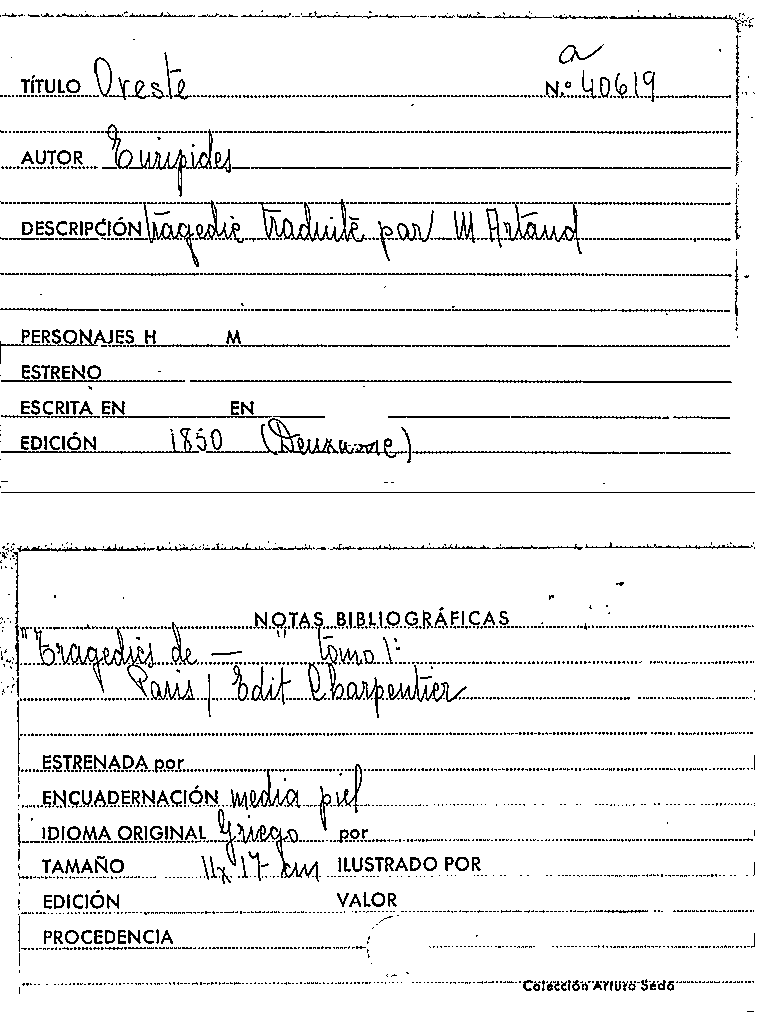 a
TÍTULO Oreste N.º 40619
AUTOR Euripides
DESCRIPCIÓN tragedie traduite par M Artaud
PERSONAJES H M
ESTRENO
ESCRITA EN EN
EDICIÓN 1850 (Deuxieme)
NOTAS BIBLIOGRÁFICAS
"Tragedies de — " tomo 1º
Paris / Edit Charpentier
ESTRENADA por
ENCUADERNACIÓN media piel
IDIOMA ORIGINAL Griego por
TAMAÑO 11x17 cm ILUSTRADO POR
EDICIÓN VALOR
PROCEDENCIA
Colección Arturo Sedó